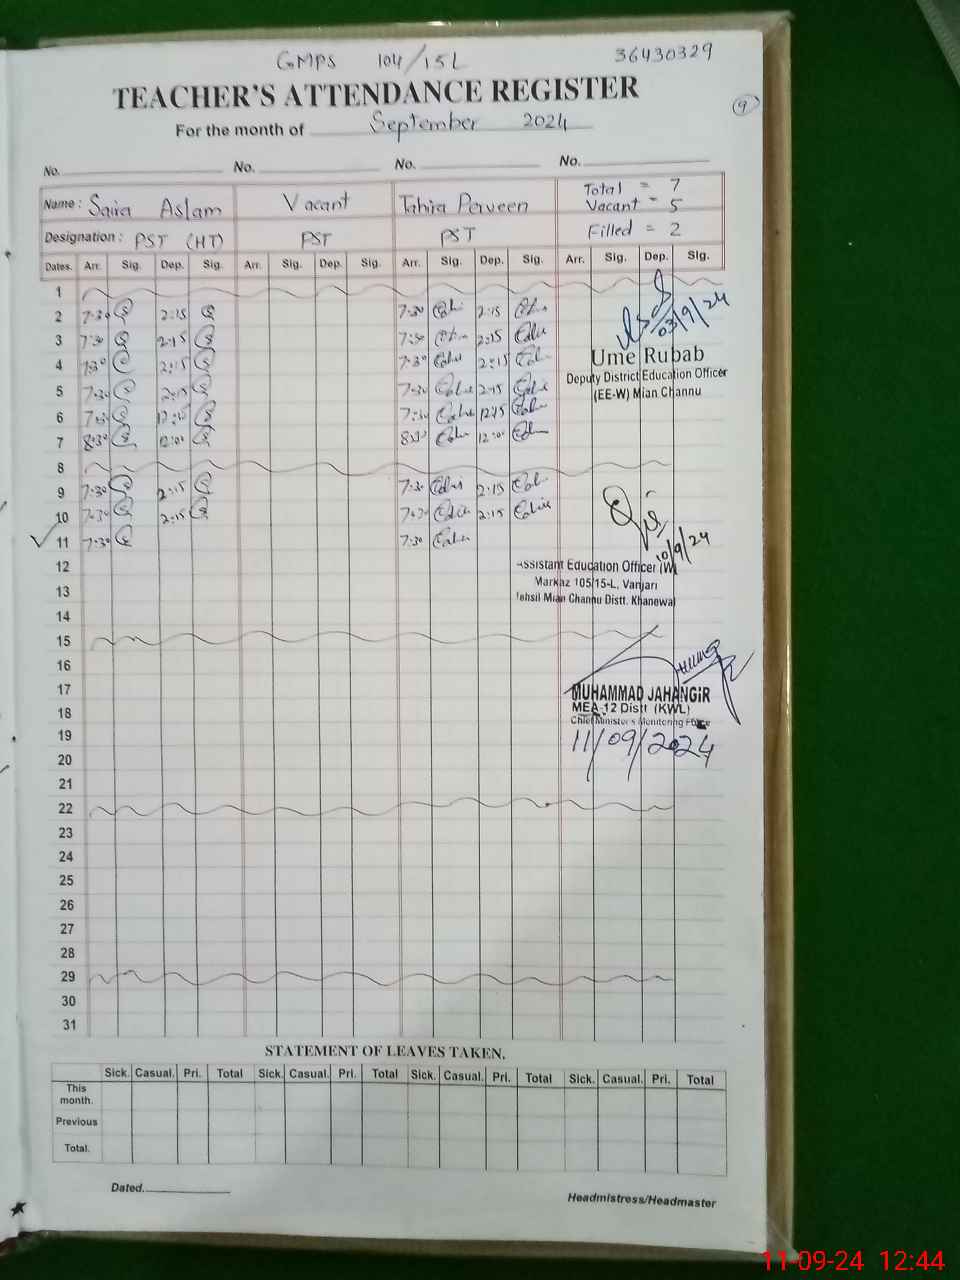 GMPS 104/15L 36430329
TEACHER'S ATTENDANCE REGISTER
9
For the month of September 2024
No. No. No. No.
Name: Saira Aslam Vacant Tahira Perveen Total = 7
Vacant = 5
Designation: PST (HT) PST PST Filled = 2
Dates. Arr. Sig. Dep. Sig. Arr. Sig. Dep. Sig. Arr. Sig. Dep. Sig. Arr. Sig. Dep. Sig.
1
2 7:30 2:15 7:30 2:15
03/9/24
3 7:30 2:15 7:30 2:15
Ume Rubab
4 7:30 2:15 7:30 2:15
Deputy District Education Officer
5 7:30 2:15 7:30 2:15
(EE-W) Mian Channu
6 7:30 12:15 7:30 12:15
7 8:30 12:00 8:30 12:00
8
9 7:30 2:15 7:30 2:15
10 7:30 2:15 7:30 2:15
11 7:30 7:30
10/9/24
12 Assistant Education Officer (W)
Markaz 105/15-L, Vanjari
13 Tehsil Mian Channu Distt. Khanewal
14
15
16
17 MUHAMMAD JAHANGIR
18 MEA-12 Distt (KWL)
Chief Minister's Monitoring Force
19 11/09/2024
20
21
22
23
24
25
26
27
28
29
30
31
STATEMENT OF LEAVES TAKEN.
Sick. Casual. Pri. Total Sick. Casual. Pri. Total Sick. Casual. Pri. Total Sick. Casual. Pri. Total
This
month.
Previous
Total.
Dated.
Headmistress/Headmaster
11-09-24 12:44